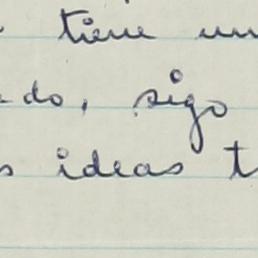 tiene un
do, sigo
s ideas t